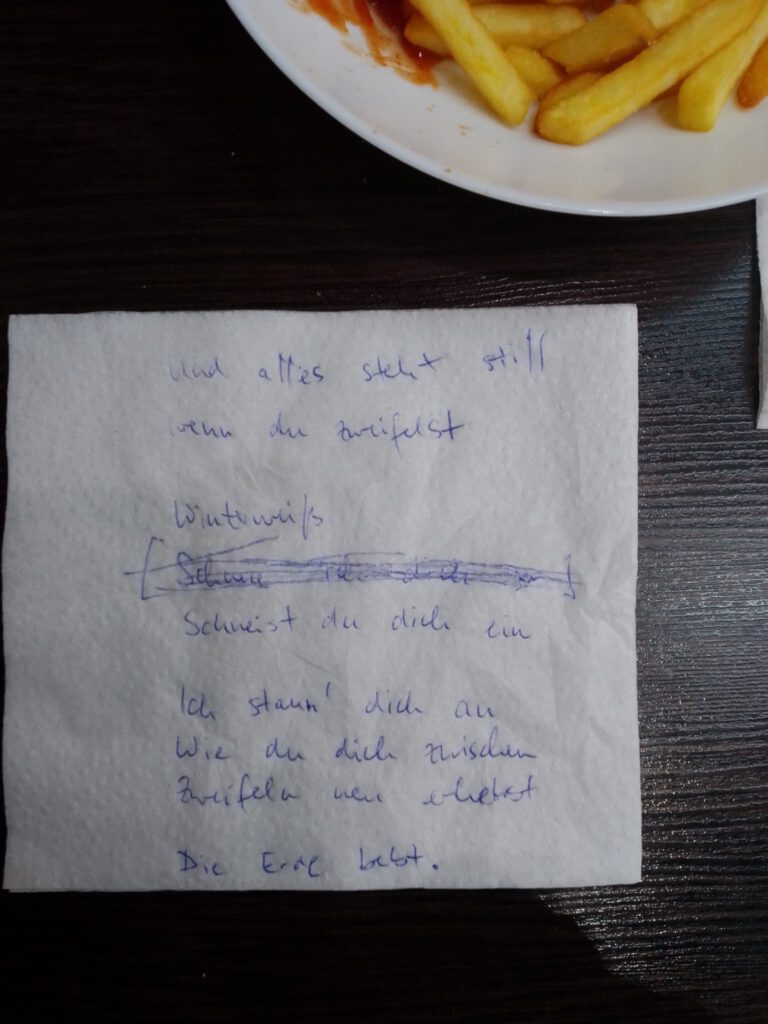 Und alles steht still
wenn du zweifelst
Winterweiß
Schneist du dich ein
Ich staun' dich an
Wie du dich zwischen
Zweifeln neu erhebst
Die Erde bebt.